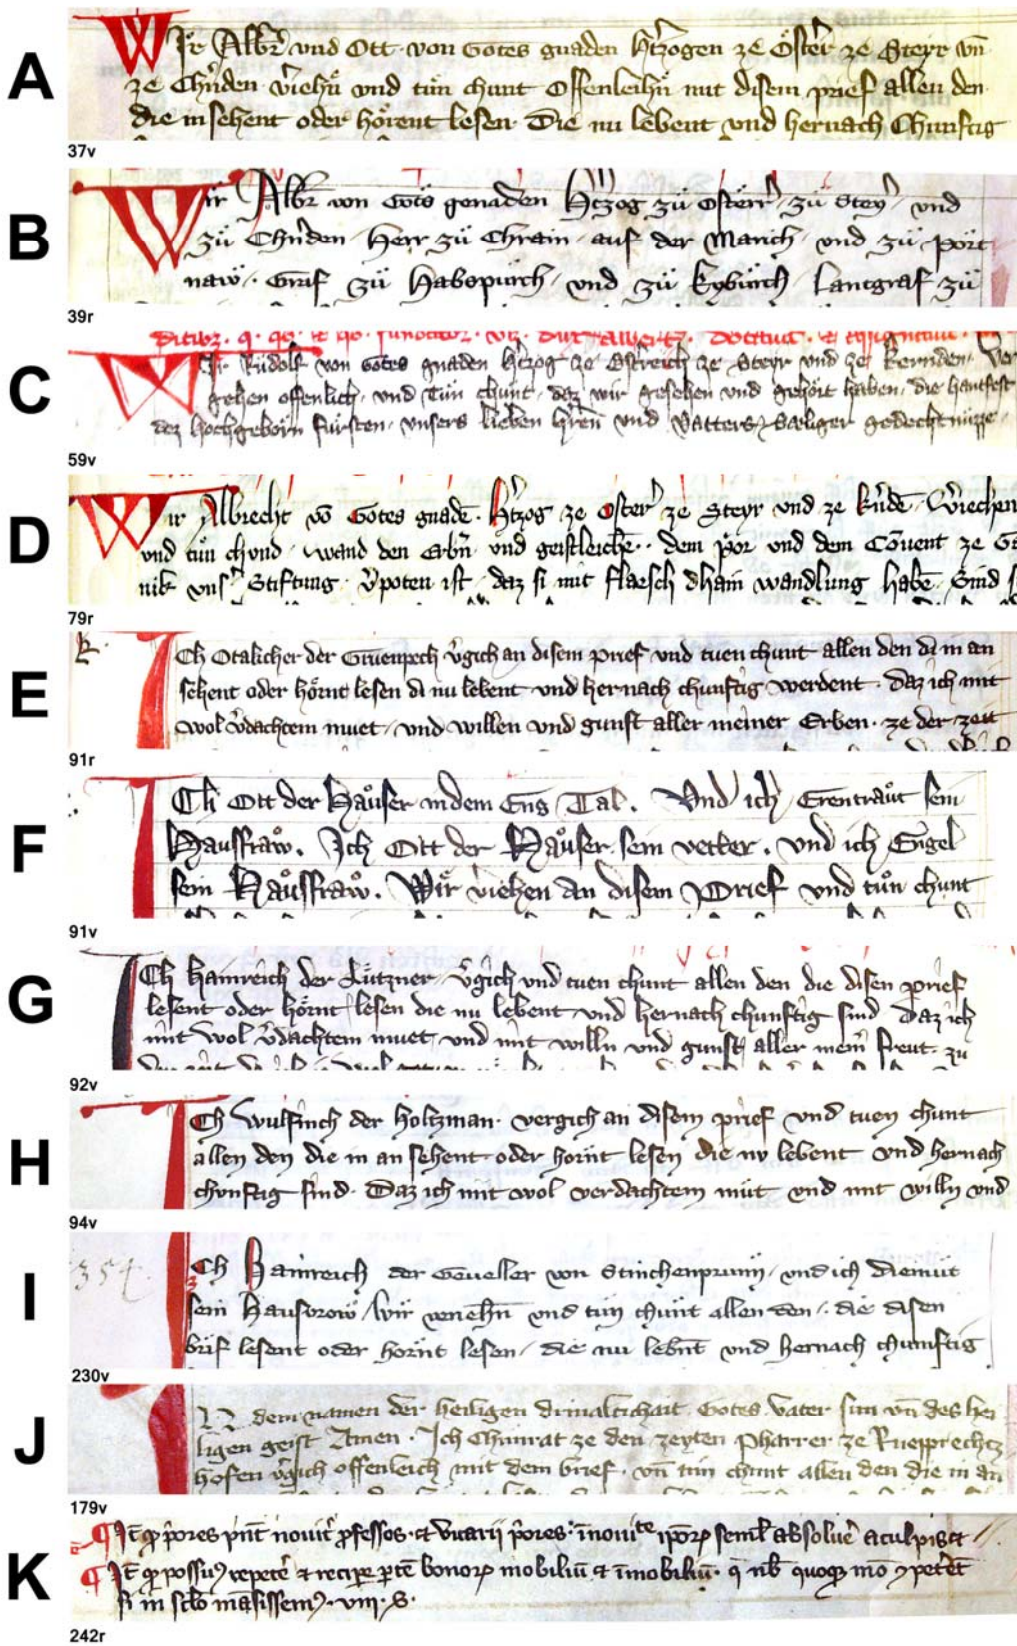 A
WIr Albr̄ vnd Ott von Gotes gnaden Hʼtzogen ze Ősterʼ ze Steyr vn̄
ze Chʼnden vʼiehn̄ vnd tůn chunt Offenleihn̄ mit disem prief allen den
die in sehent oder hőrent lesen Die nu lebent vnd hernach Chunftig
37v
B
Wir Albr̄ von Gots genaden Hʼtzog zü Osterrʼ zü Steyʼ vnd
zü Chʼnden Herr zü Chrain auf der March vnd zü Port
naw Graf zü Habspurch vnd zü Kyburch Lantgraf zü
39r
C
WIr Růdolf von Gotes gnaden Hʼtzog ze Ostreich ze Steyr vnd ze Kernden Ver
gehen offenlich vnd Tůn chunt daz wir gesehen vnd gehört haben die hantfest
dez hochgeborn fürsten vnsers lieben Hʼren vnd Vatters Sæliger gedechtnüzze
59v
D
Wir Albrecht vō Gotes gnadē Hʼtzog ze Osterʼ ze Steyr vnd ze Kʼndē Vʼiechen
vnd tůn chund wand den Erbn̄ vnd geistleichē dem Pʼor vnd dem Couent ze Ge
nik vnsʼ Stiftung vʼpoten ist daz si mit flaesch dhain wandlung habē Sind s
79r
E
ICh Otakcher der Gruenpech vʼgich an disem prief vnd tuen chunt allen den di in an
sehent oder hőrnt lesen di nu lebent vnd hernach chunftig werdent daz ich mit
wol vʼdachtem muet vnd willen vnd gunst aller meiner Erben ze der zeit
91r
F
ICh Ott der Haůser in dem Ens Tal. Vnd ich Erentraůt sein
Hausfraẘ. Jch Ott der Haůser sein vetter. vnd ich Engel
sein Haůsfraẘ. Wir vʼiehen an disem Prief vnd tůn chunt
91v
G
ICh Hainreich der Lützner vʼgich vnd tuen chunt allen den die disen prief
lesent oder hőrnt lesen die nu lebent vnd hernach chunftig sind Daz ich
mit wol vʼdachtem muet vnd mit willn vnd gunst aller mein̄ freut zu
92v
H
ICh Wulfinch der Holtzman vergich an disem prief vnd tuen chunt
allen den die in an sehent oder hornt lesen die nv lebent vnd hernach
chvnftig sind Daz ich mit wol verdachtem mŭt vnd mit willn vnd
94v
I
354
ICh Hainreich der Geueller von Stinchenprunn vnd ich Diemůt
sein Hausvrow wir veriehn̄ vnd tůn chunt allen den die disen
brif lesent oder hornt lesen die nu lebn̄t vnd hernach chunftig
230v
J
IN dem namen der heiligen driualtichait Gotes Vater sun vn̄ des hei
ligen geist Amen Ich Chunrat ze den zeyten Pharrer ze Rueprechtz
hofen vʼgich offenleich mit dem brief vn̄ tun chunt allen den die in an
179v
K
Jt̄ ꝙ pʼores pn̄t nouic̄ ꝓfessos et vicarii pʼores īnouitᵉ ip̄oꝝ semel absoluē a culpis et
Jt̄ ꝙ possum9 repetē et recipe ptē bonoꝝ mobiliū et īmobiliū q̄ nb̄ quoqꝫ mō ꝯpetēt
si in sclo mās̄issem9 viij S
242r